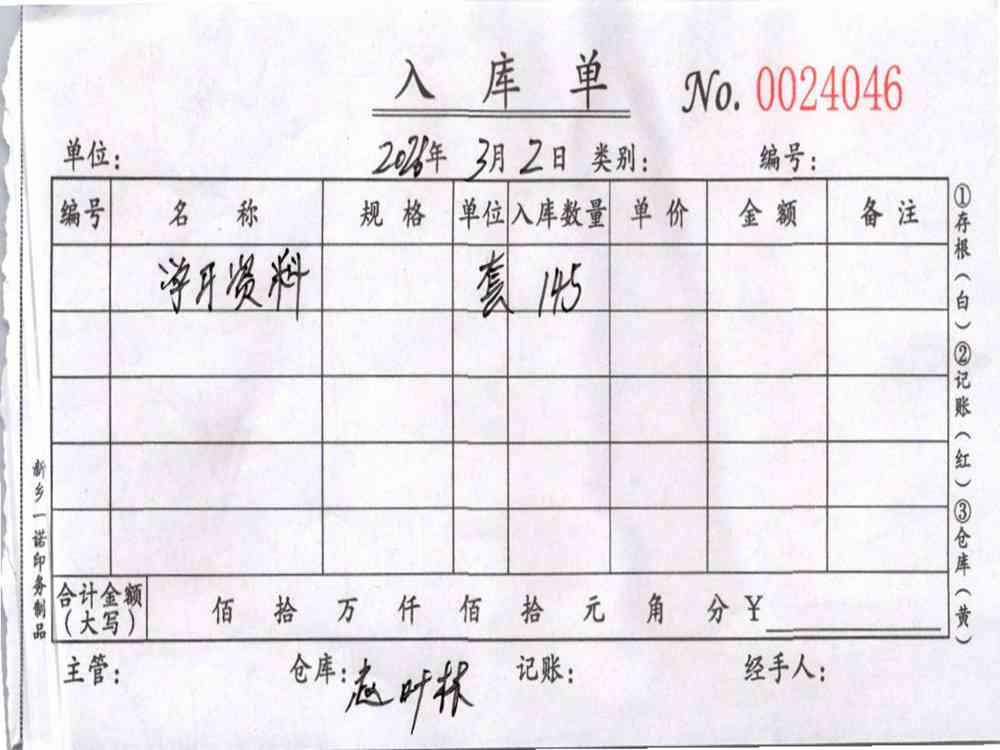 入库单 No. 0024046
单位: 2026年 3月 2日 类别: 编号:
编号 名称 规格 单位 入库数量 单价 金额 备注
资料 套 145
合计金额(大写) 佰 拾 万 仟 佰 拾 元 角 分 ¥
主管: 仓库: 赵叶林 记账: 经手人:
①存根(白)②记账(红)③仓库(黄)
新乡一诺印务制品